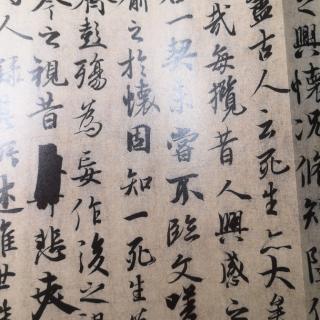 之興懷況脩短隨
盡古人云死生亦大矣
哉每攬昔人興感之
一契未嘗不臨文嗟
喻之於懷固知一死生
齊彭殤為妄作後之
今之視昔悲夫
人錄其所述雖世